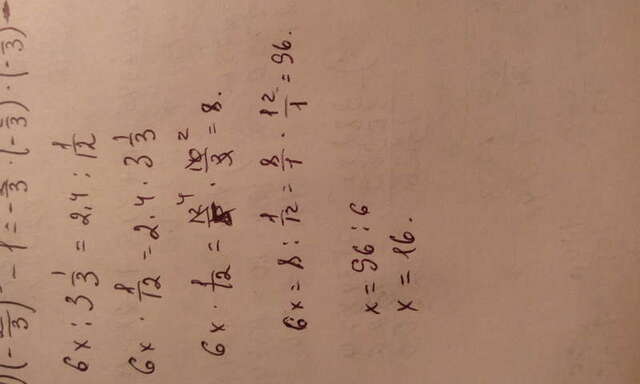 6x : 3 1/3 = 2.4 : 1/12
6x · 1/12 = 2.4 · 3 1/3
6x · 1/12 = 12 4/5 · 10 2/3 = 8.
6x = 8 : 1/12 = 8/1 · 12/1 = 96.
x = 96 : 6
x = 16.